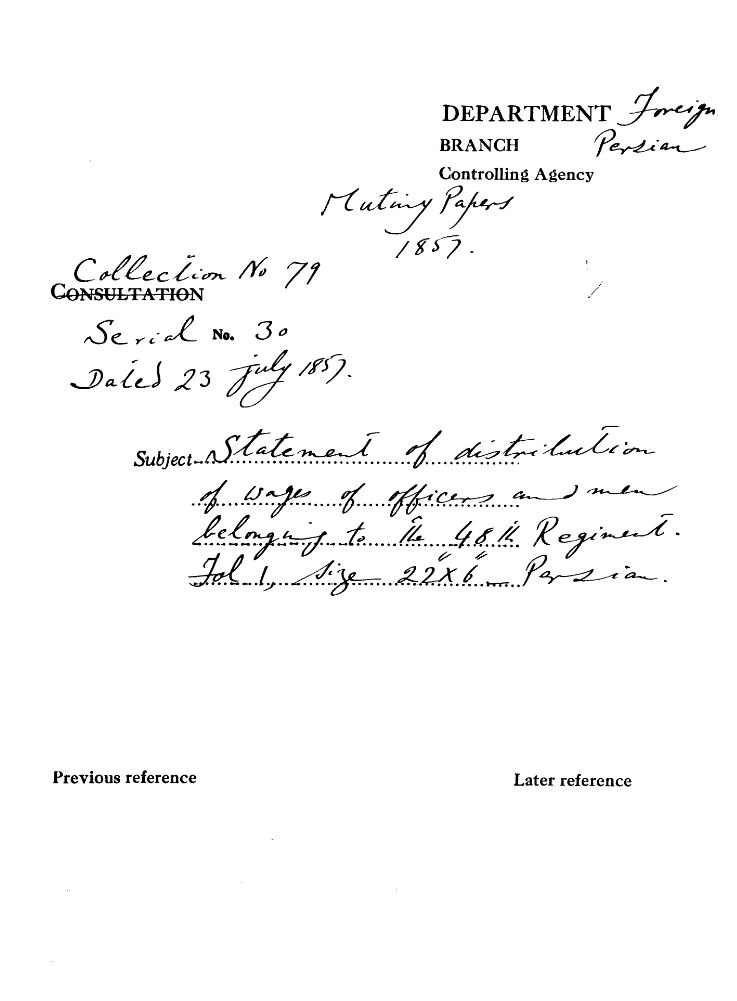 DEPARTMENT Foreign
BRANCH Persian
Controlling Agency
Mutiny Papers
1857.
Collection No 79
CONSULTATION
Serial No. 30
Dated 23 july 1857.
Subject Statement of distribution
of wages of officers and men
belonging to the 48th Regiment.
Fol 1, Size 22"X6" Persian.
Previous reference
Later reference